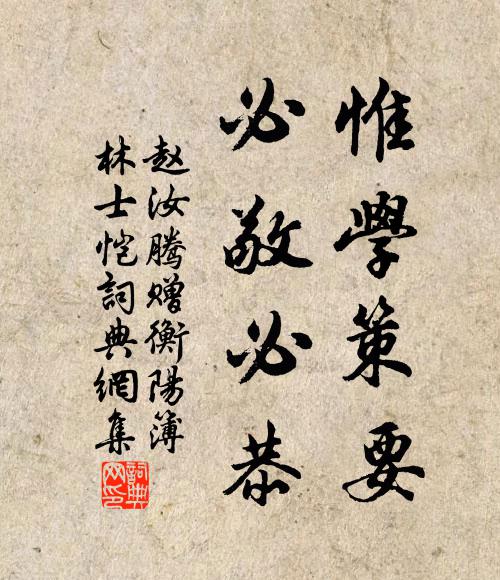 惟學策要
必敬必恭
赵汝腾赠衡陽簿
林士恺詞典網集
詞典
网印